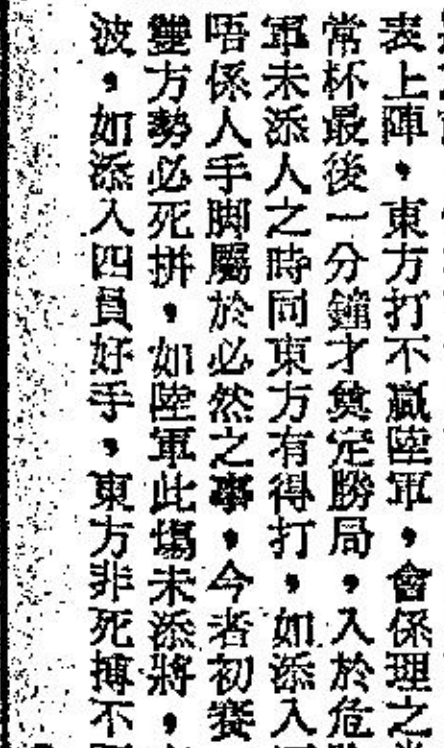 表上陣，東方打不贏陸軍，會係理之
常杯最後一分鐘才奠定勝局，入於危
軍未添人之時同東方有得打，如添入
唔係人手脚屬於必然之事，今者初賽
雙方勢必死拼，如陸軍此場未添將，
波，如添入四員好手，東方非死搏不